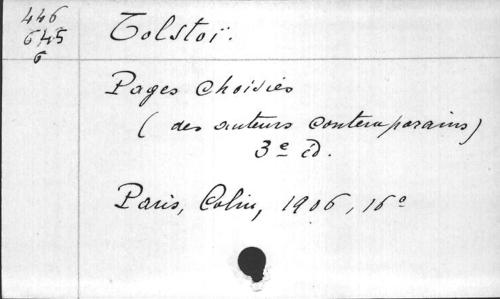 446
645
6
Tolstoï.
Pages choisies
(des auteurs contemporains)
3e éd.
Paris, Colin, 1906, 16°